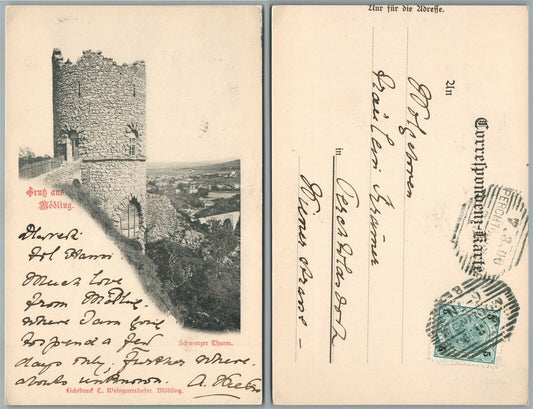 Gruß aus
Mödling.
Frl. Hansi.
Much love
from Mödling.
where I am going
to spend a few
days only, further where-
abouts unknown.
Schwarzer Thurm.
Lichtdruck C. Weingartshofer. Mödling.
Nur für die Adresse.
Correspondenz-Karte
An
Wohlgeboren
Fräulein
in
Perchtoldsdorf
Wiener strasse
PERCHTO
5
5